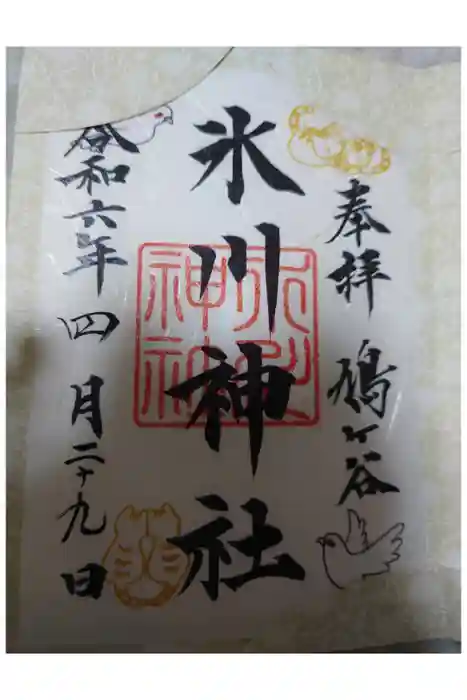 奉拝 鳩ヶ谷
氷川神社
氷川神社
令和六年四月二十九日